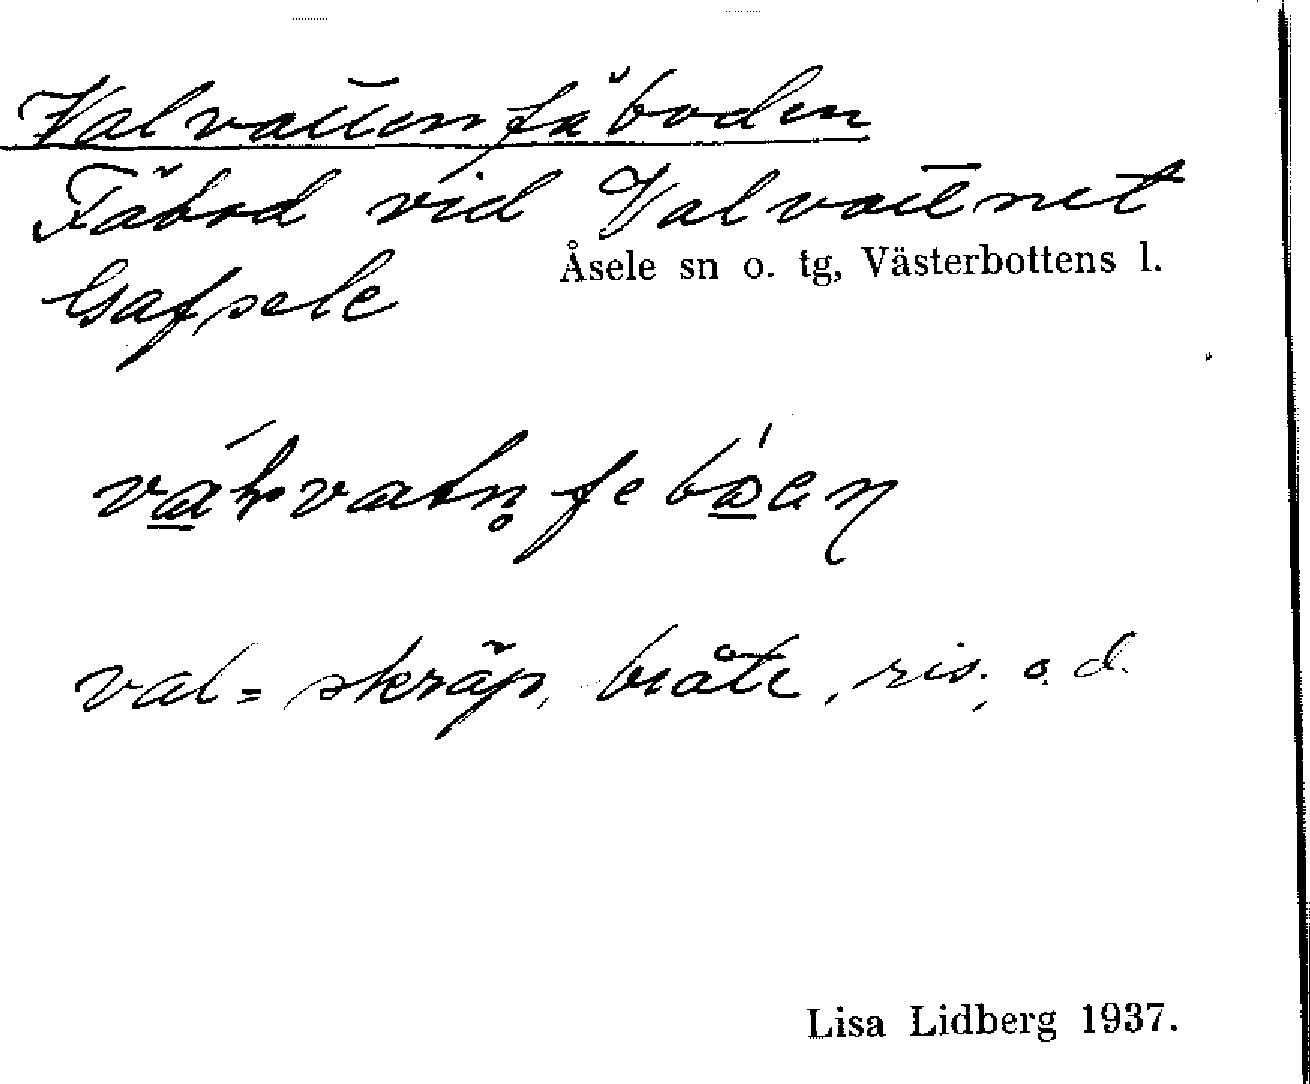 Valvattenfäboden
Fäbod vid Valvattnet
Åsele sn o. tg, Västerbottens l.
Gafsele
val = skräp, bråte, ris. o. d.
Lisa Lidberg 1937.